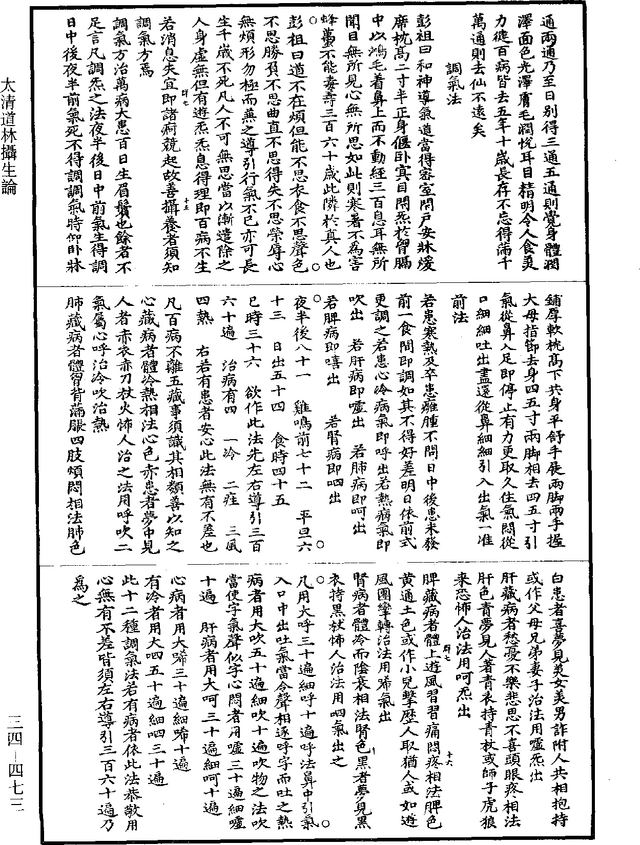 通兩通乃至日別得三通五通則覺身體潤
澤面色光澤膚毛潤悅耳目精明令人食美
力徤百病皆去五年十歲長存不忘得滿千
萬通則去仙不遠矣
調氣法
彭祖曰和神導氣道當得密室閇戶安牀煖
席枕髙二寸半正身偃臥冥目閇炁於胷膈
中以鴻毛着鼻上而不動經三百息耳無所
聞目無所見心無所思如此則寒暑不爲害
蜂蠆不能毒壽三百六十歲此隣於真人也
彭祖曰道不在煩但能不思衣食不思聲色
不思勝負不思曲直不思得失不思榮辱心
無煩形勿極而兼之導引行氣不已亦可長
生千歲不死凡人不可無思當以漸遣除之
人身虛無但有遊炁炁息得理即百病不生
若消息失宜即諸痾競起故善攝養者須知
調氣方焉
調氣方治萬病大患百日生眉鬚也餘者不
足言凡調炁之法夜半後日中前氣生得調
日中後夜半前氣死不得調調氣時仰臥牀
鋪厚軟枕髙下共身平舒手展兩脚兩手握
大母指節去身四五寸兩脚相去四五寸引
氣從鼻入足即停止有力更取久住氣悶從
口細細吐出盡還從鼻細細引入出氣一准
前法
若患寒熱及卒患癰腫不問日中後患未發
前一食間即調如其不得好差明日依前式
更調之若患心冷病氣即呼出若熱病氣即
吹出　若肝病即噓出　若肺病即呵出
若脾病即嘻出　若腎病即呬出
夜半後八十一　雞鳴前七十二　平旦六
十三　日出五十四　食時四十五
巳時三十六　欲作此法先左右導引三百
六十遍　治病有四　一冷　二疰　三風
四熱　右若有患者安心此法無有不差也
凡百病不離五藏事須識其相類善以知之
心藏病者體冷熱相法心色赤患者夢中見
人者赤衣赤刀杖火怖人治之法用呼吹二
氣屬心呼治冷吹治熱
肺藏病者體胷背滿脹四肢煩悶相法肺色
白患者喜夢見美女美男詐附人共相抱持
或作父母兄弟妻子治法用噓炁出
肝藏病者愁憂不樂悲思不喜頭眼疼相法
肝色青夢見人著青衣持青杖或師子虎狼
來恐怖人治法用呵炁出
脾藏病者體上遊風習習痛悶疼相法脾色
黄通土色或作小兒擊歷人取猶人或如遊
風團攣轉治法用㗭氣出
腎病者體冷而陰衰相法腎色黑者夢見黑
衣持黑杖怖人治法用呬氣出之
凡用大呼三十遍細呼十遍呼法鼻中引氣
入口中出吐氣當令聲相逐呼字而吐之熱
病者用大吹五十遍細吹十遍吹物之法吹
當使字氣聲似字心悶者用噓三十遍細噓
十遍　肝病者用大呵三十遍細呵十遍
心病者用大㗭三十遍細㗭十遍
有冷者用大呬五十遍細呬三十遍
此十二種調氣法若有病者依此法恭敬用
心無有不差皆須左右導引三百六十遍乃
爲之
太清道林攝生論
三四-四七三